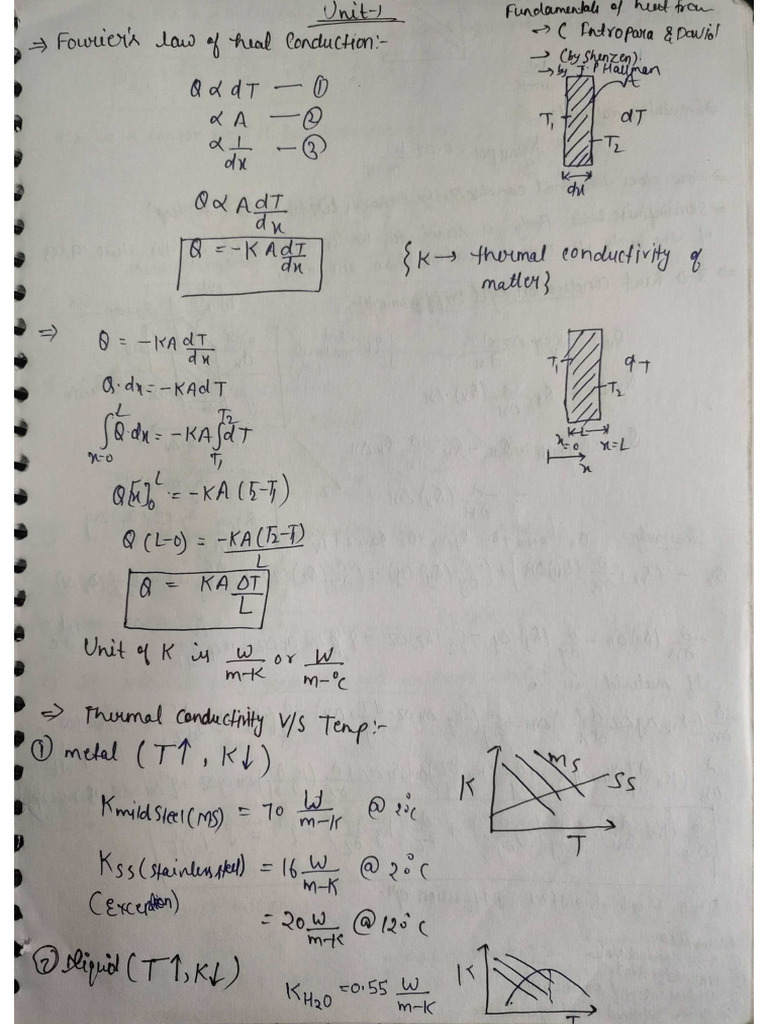 Unit-1
Fundamentals of heat tran
→ ( Intropara & David
→ (by Shenzen)
→ by J.P Hallman
⇒ Fourier's law of heat conduction:-
Q α dT — ①
α A — ②
α 1/dx — ③
A
T1 dT
T2
dx
Q α A dT/dx
Q = -KA dT/dx
{K → thermal conductivity of
matter}
⇒ Q = -KA dT/dx
Q·dx = -KAdT
∫x=0^L Q·dx = -KA ∫T1^T2 dT
Q[x]0^L = -KA (T2-T1)
Q (L-0) = -KA(T2-T1)/L
Q = KA ΔT/L
T1 dT
T2
L
x=0 x=L
x
Unit of K is W/m-K or W/m-°C
⇒ Thermal conductivity V/S Temp:-
① metal (T↑, K↓)
K mild steel (MS) = 70 W/m-K @ 20°C
K SS (stainless steel) = 16 W/m-K @ 20°C
(Exception)
= 20 W/m-K @ 120°C
K
MS
SS
T
② liquid (T↑, K↓)
K H2O = 0.55 W/m-K
K
T